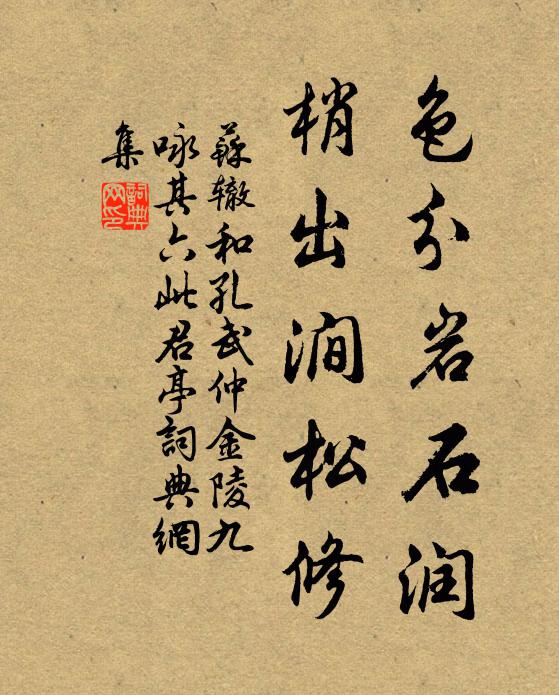 色分岩石润
梢出涧松修
蘇辙和孔武仲金陵九
咏其六此君亭詞典網
集
詞典网印